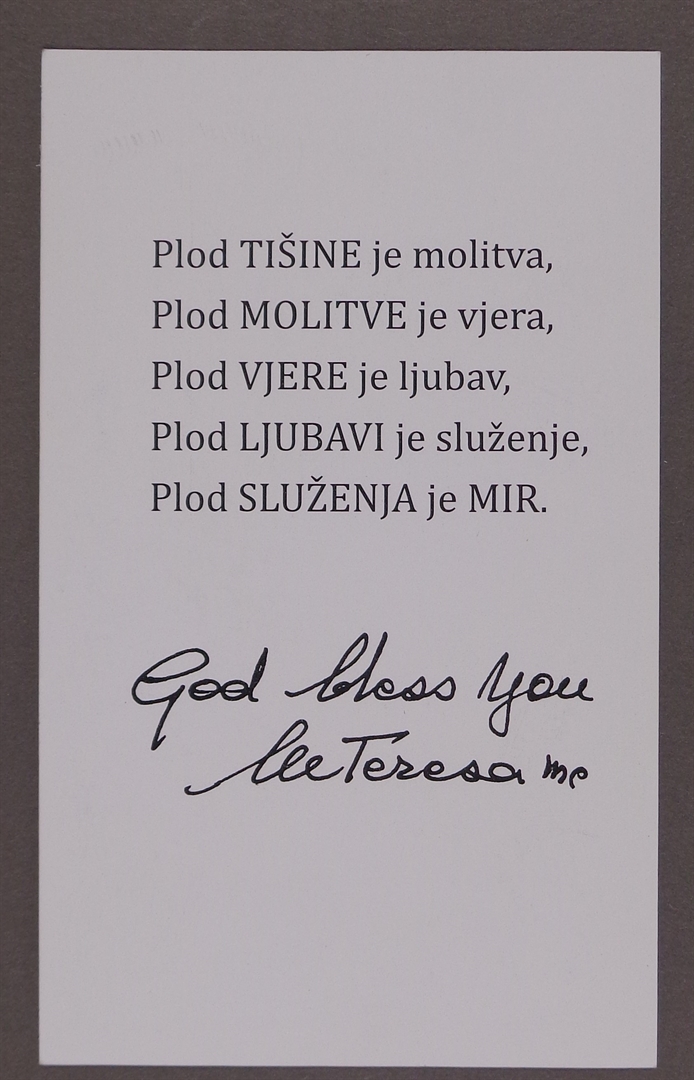 Plod TIŠINE je molitva,
Plod MOLITVE je vjera,
Plod VJERE je ljubav,
Plod LJUBAVI je služenje,
Plod SLUŽENJA je MIR.
God bless you
M Teresa mc